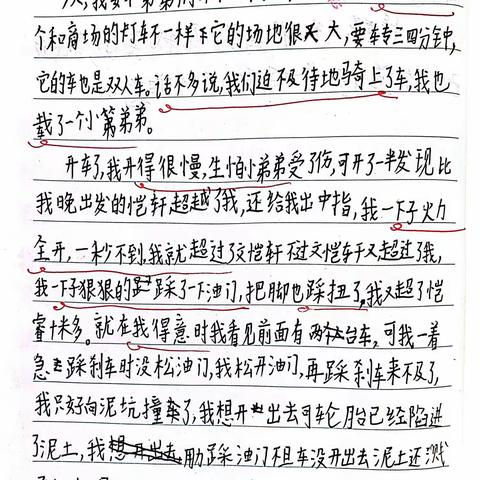 个和商场的卡车不一样下它的场地很大,要车专三四分钟,
它的车也是双人车。话不多说,我们迫不及待地骑上了车,我也
载了一个小弟弟。
开车了,我开得很慢,生怕小弟弟受了伤,可开了一半发现比
我晚出发的恺轩超越了我,还给我出中指,我一下子火力
全开,一秒不到,我就超过了文恺轩不过文恺轩又超过了我,
我一下子狠狠的踩了一下油门,把脚也踩扭了,我又超了恺
睿十米多。就在我得意时我看见前面有两台车,可我一着
急踩刹车时没松油门,我松开油门,再踩刹车来不及了,
我只好向泥坑撞去了,我想开出去可车轮胎已经陷进
了泥土,我再踩油门不但车没开出去泥土还溅